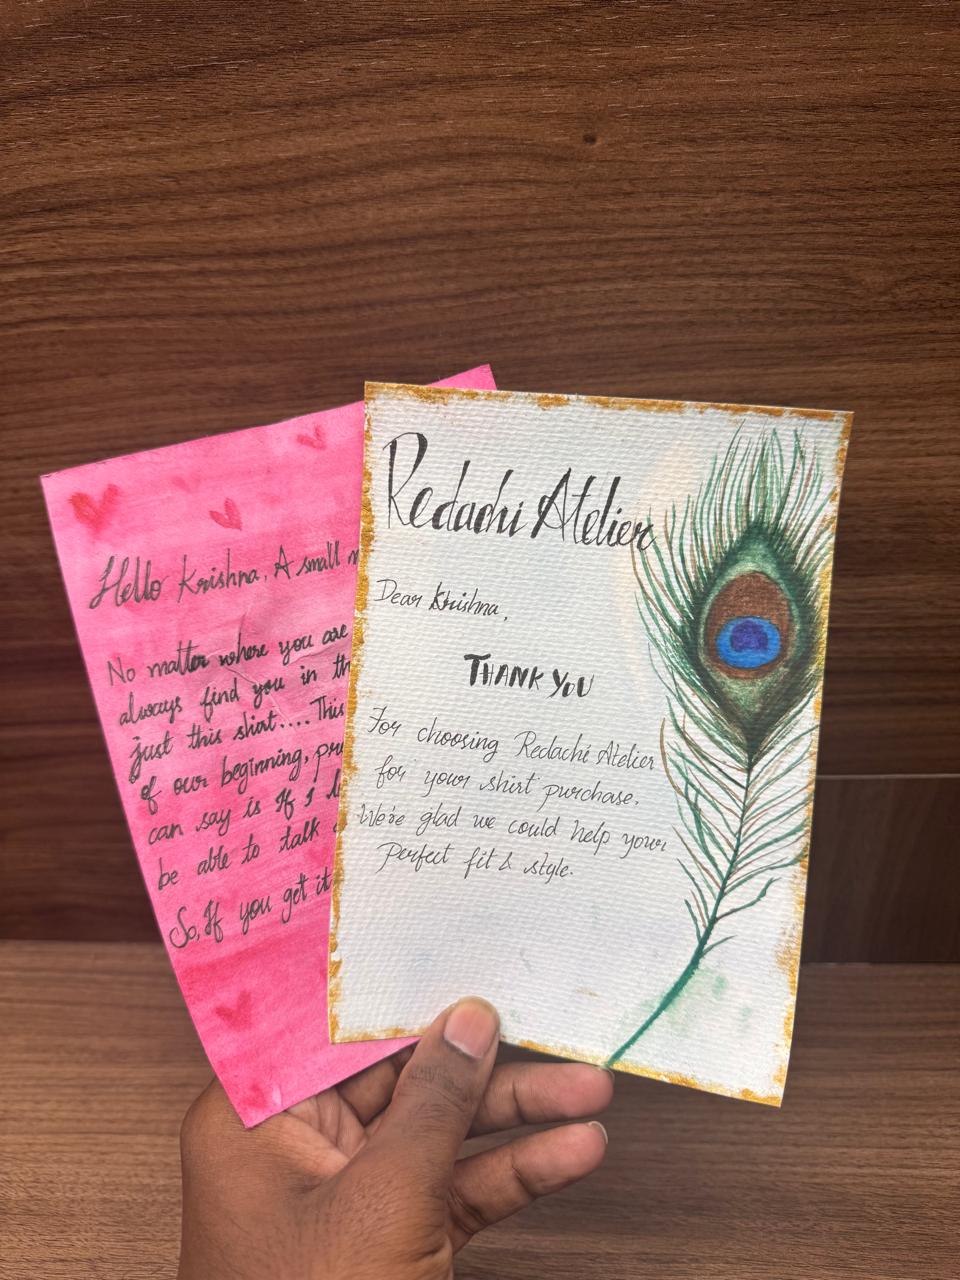 Hello Krishna, A small
No matter where you are
always find you in
just this shirt.... This
of our beginning,
can say is If I
be able to talk
So, If you get it
Redachi Atelier
Dear Krishna,
THANK YOU
For choosing Redachi Atelier
for your shirt purchase.
We're glad we could help your
Perfect fit & style.